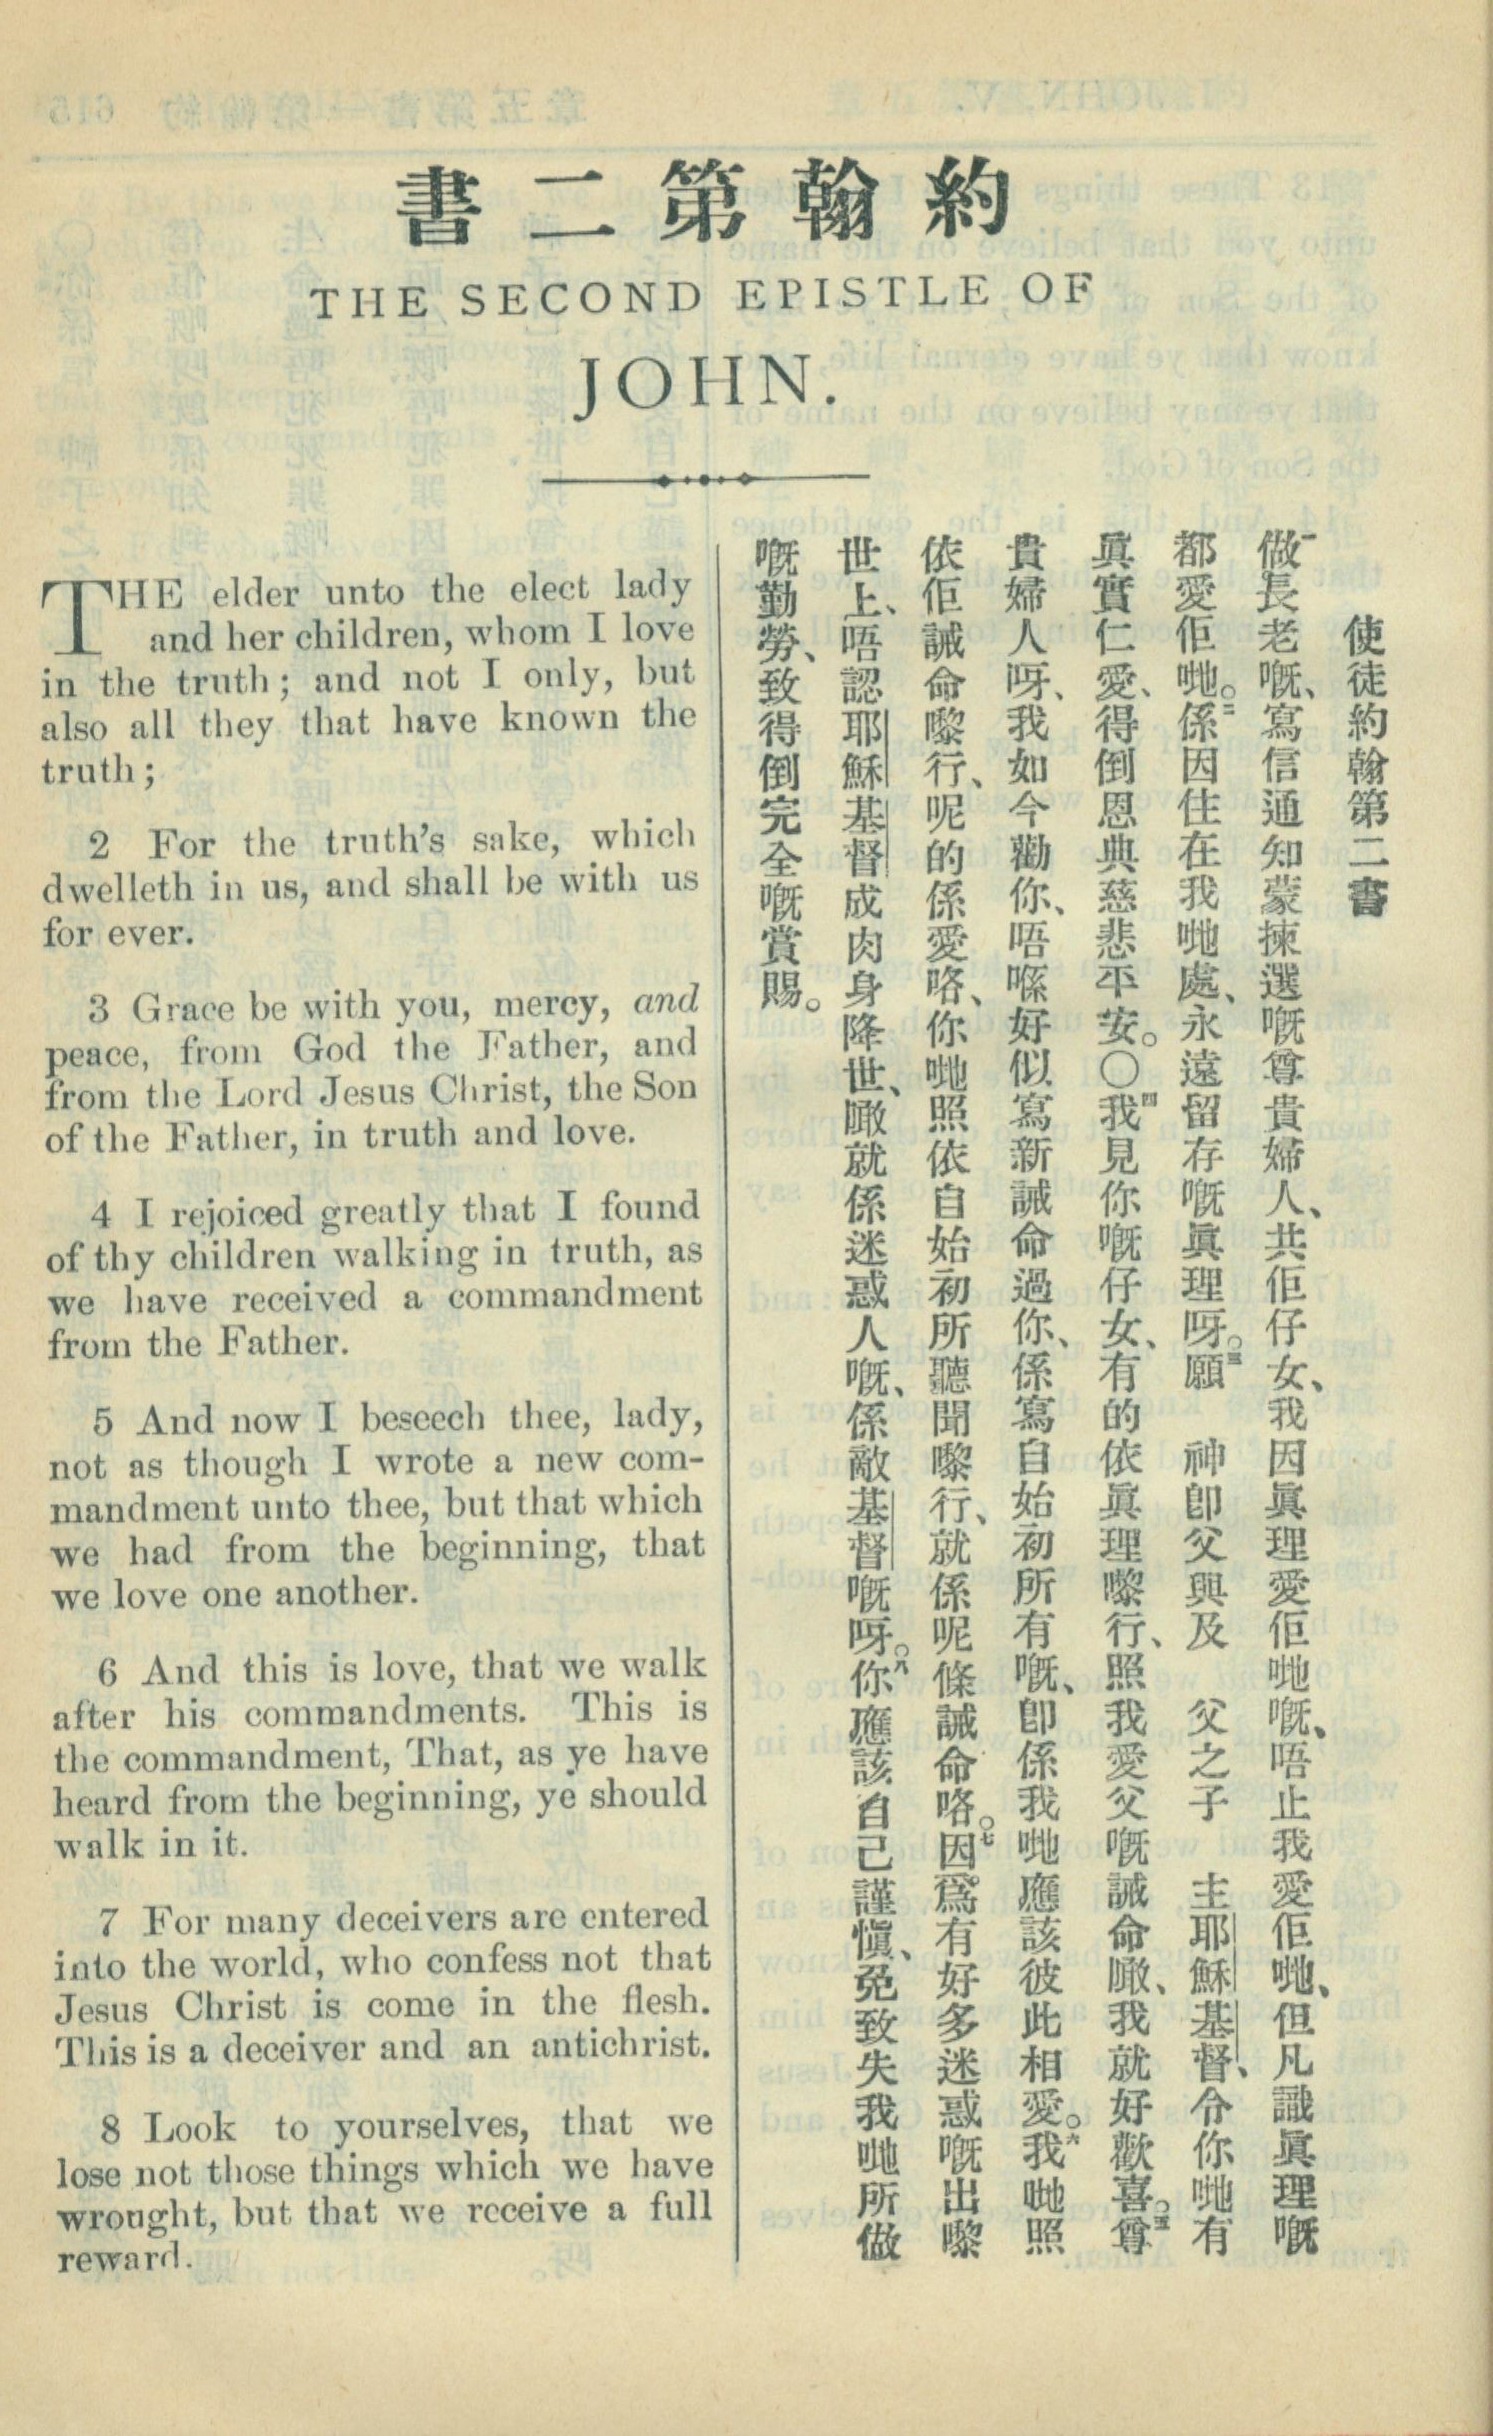 約翰第二書
THE SECOND EPISTLE OF
JOHN.
THE elder unto the elect lady
and her children, whom I love
in the truth; and not I only, but
also all they that have known the
truth;
2 For the truth's sake, which
dwelleth in us, and shall be with us
for ever.
3 Grace be with you, mercy, and
peace, from God the Father, and
from the Lord Jesus Christ, the Son
of the Father, in truth and love.
4 I rejoiced greatly that I found
of thy children walking in truth, as
we have received a commandment
from the Father.
5 And now I beseech thee, lady,
not as though I wrote a new com-
mandment unto thee, but that which
we had from the beginning, that
we love one another.
6 And this is love, that we walk
after his commandments. This is
the commandment, That, as ye have
heard from the beginning, ye should
walk in it.
7 For many deceivers are entered
into the world, who confess not that
Jesus Christ is come in the flesh.
This is a deceiver and an antichrist.
8 Look to yourselves, that we
lose not those things which we have
wrought, but that we receive a full
reward.
使徒約翰第二書
一做長老嘅、寫信通知蒙揀選嘅尊貴婦人、共佢仔女、我因眞理愛佢哋嘅、唔止我愛佢哋、但凡識眞理嘅
都愛佢哋。二係因住在我哋處、永遠留存嘅眞理呀。三願 神卽父與及 父之子 主耶穌基督、令你哋有
眞實仁愛、得倒恩典慈悲平安。〇四我見你嘅仔女、有的依眞理嚟行、照我愛父嘅誡命噉、我就好歡喜。五尊
貴婦人呀、我如今勸你、唔喺好似寫新誡命過你、係寫自始初所有嘅、卽係我哋應該彼此相愛。六我哋照
依佢誡命嚟行、呢的係愛咯、你哋照依自始初所聽聞嚟行、就係呢條誡命咯。七因爲有好多迷惑嘅出嚟
世上、唔認耶穌基督成肉身降世、噉就係迷惑人嘅、係敵基督嘅呀。八你應該自己謹愼、免致失我哋所做
嘅勤勞、致得倒完全嘅賞賜。